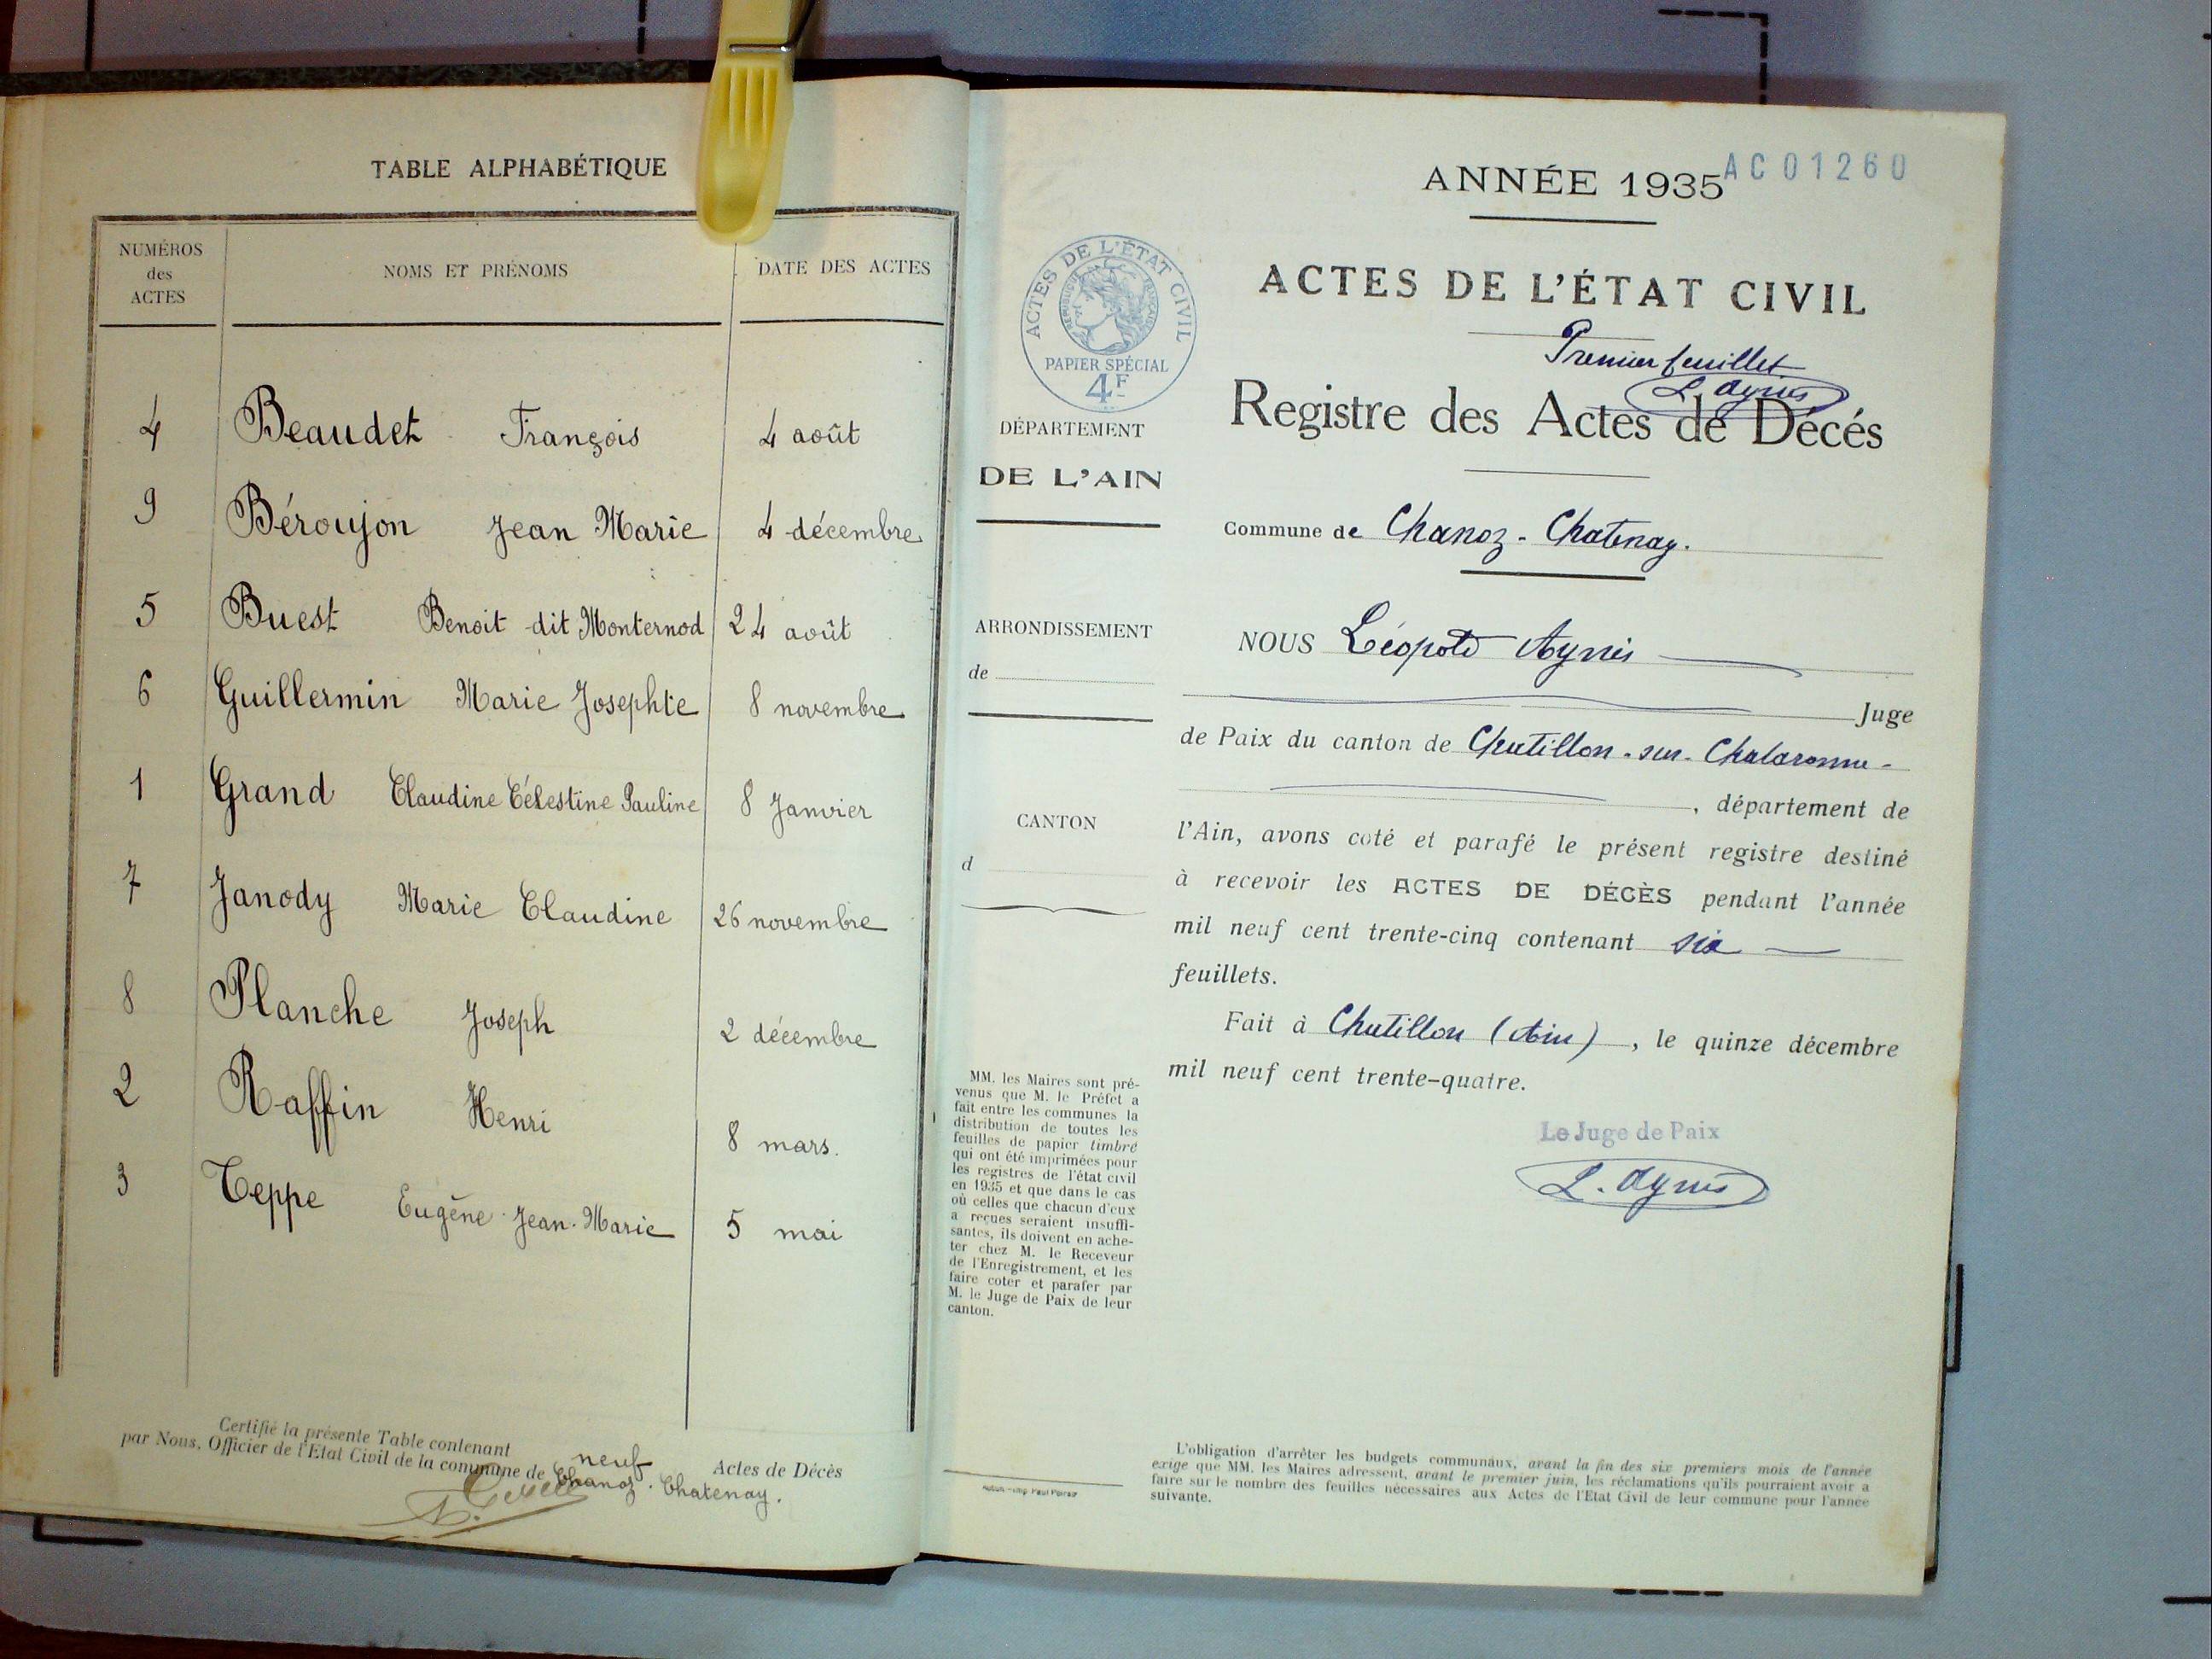 TABLE ALPHABÉTIQUE
NUMÉROS
des
ACTES
NOMS ET PRÉNOMS
DATE DES ACTES
4 Beaudet François 4 août
9 Béroujon Jean Marie 4 décembre
5 Buest Benoit dit Monternod 24 août
6 Guillermin Marie Josephte 8 novembre
1 Grand Claudine Célestine Pauline 8 Janvier
7 Janody Marie Claudine 26 novembre
8 Planche Joseph 2 décembre
2 Raffin Henri 8 mars.
3 Teppe Eugène Jean-Marie 5 mai
Certifié la présente Table contenant neuf Actes de Décès
par Nous, Officier de l'Etat Civil de la commune de Chanoz-Chatenay.
ANNÉE 1935
AC01260
ACTES DE L'ÉTAT CIVIL
RÉPUBLIQUE FRANÇAISE
PAPIER SPÉCIAL
4F
ACTES DE L'ÉTAT CIVIL
Premier feuillet
L. Aynès
Registre des Actes de Décés
DÉPARTEMENT
DE L'AIN
Commune de Chanoz-Chatenay.
ARRONDISSEMENT
de
CANTON
d
NOUS Léopold Aynès
Juge
de Paix du canton de Chatillon-sur-Chalaronne-
, département de
l'Ain, avons coté et parafé le présent registre destiné
à recevoir les ACTES DE DÉCÈS pendant l'année
mil neuf cent trente-cinq contenant six
feuillets.
Fait à Chatillon (Ain), le quinze décembre
mil neuf cent trente-quatre.
Le Juge de Paix
L. Aynès
MM. les Maires sont pré-
venus que M. le Préfet a
fait entre les communes la
distribution de toutes les
feuilles de papier timbré
qui ont été imprimées pour
les registres de l'état civil
en 1935 et que dans le cas
où celles que chacun d'eux
a reçues seraient insuffi-
santes, ils doivent en ache-
ter chez M. le Receveur
de l'Enregistrement, et les
faire coter et parafer par
M. le Juge de Paix de leur
canton.
L'obligation d'arrêter les budgets communaux, avant la fin des six premiers mois de l'année
exige que MM. les Maires adressent, avant le premier juin, les réclamations qu'ils pourraient avoir a
faire sur le nombre des feuilles nécessaires aux Actes de l'Etat Civil de leur commune pour l'année
suivante.